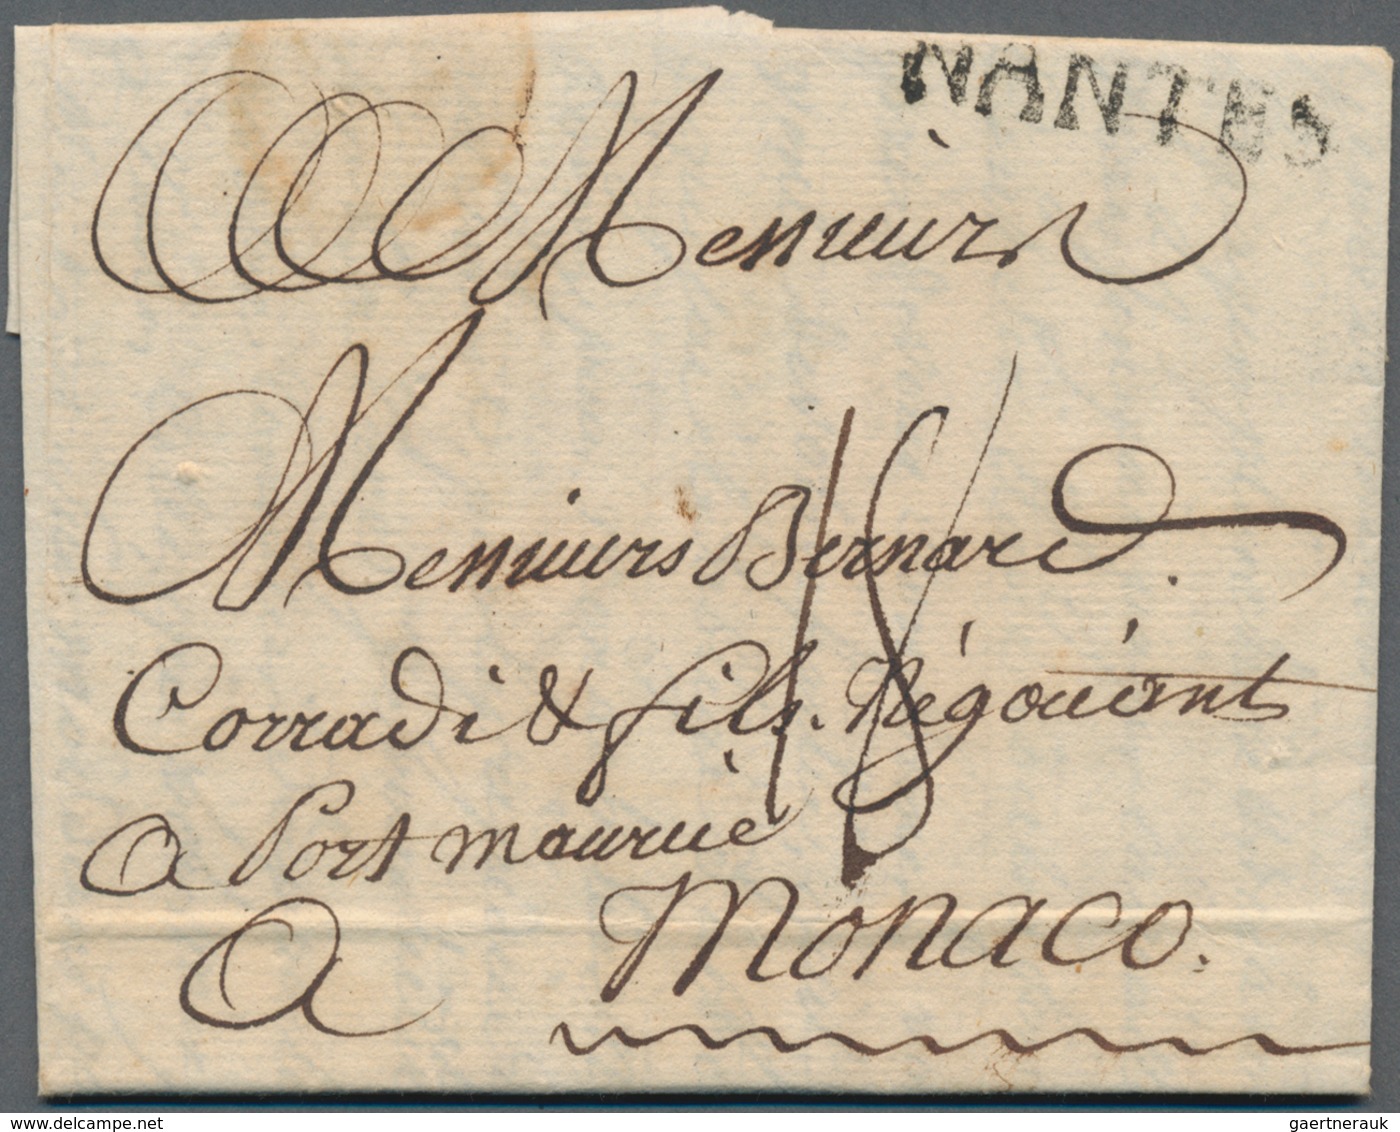 NANTES
Messieurs
Messieurs Bernard
Corradi & fils. Négociant
a Port Maurice
18
a Monaco.
gaertnerauk